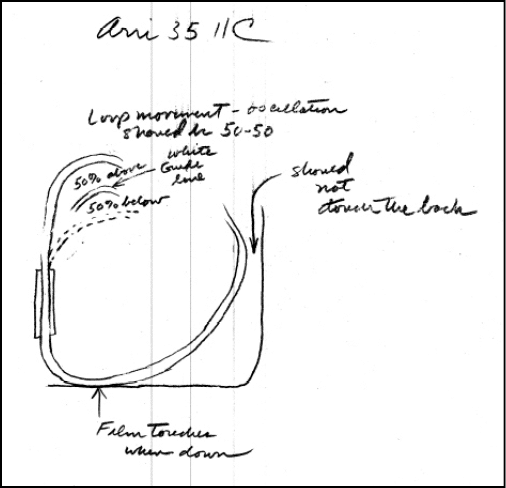 Arri 35 IIC
Loop movement - oscillation
should be 50-50
white
Guide
line
50% above
50% below
should
not
touch the back
Film touches
when down